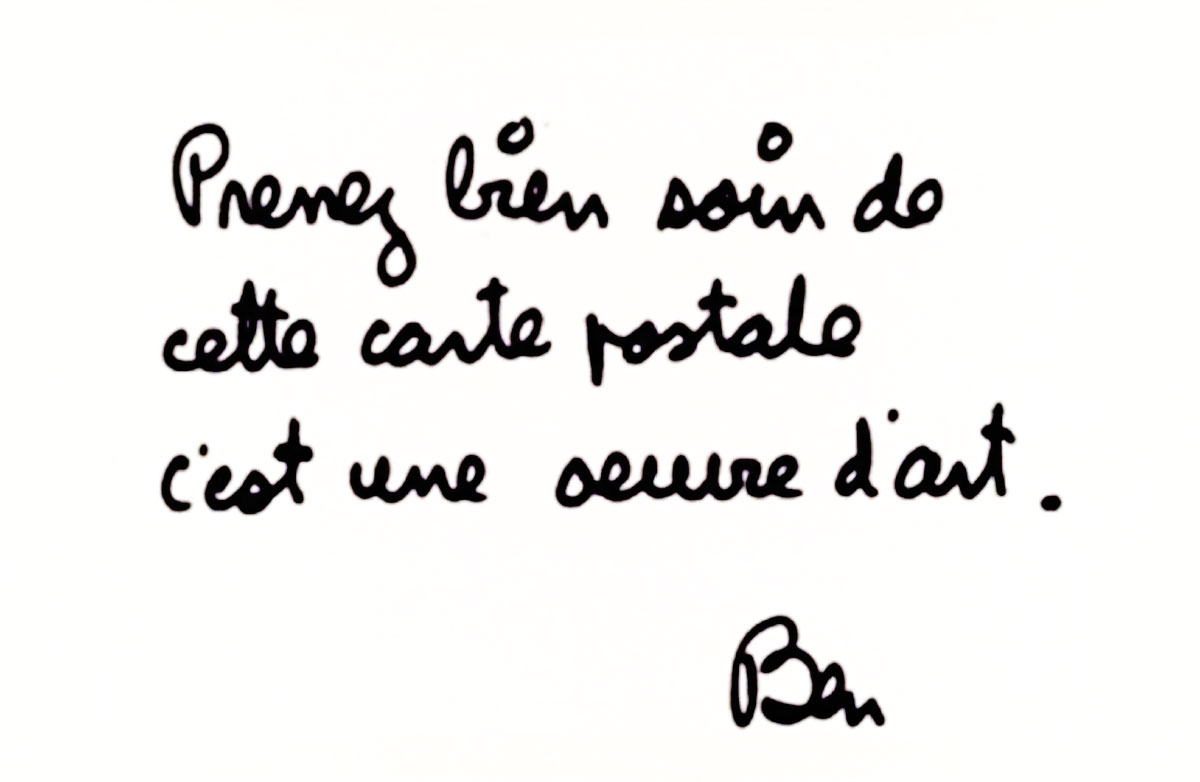 Prenez bien soin de
cette carte postale
c'est une oeuvre d'art.
Ben